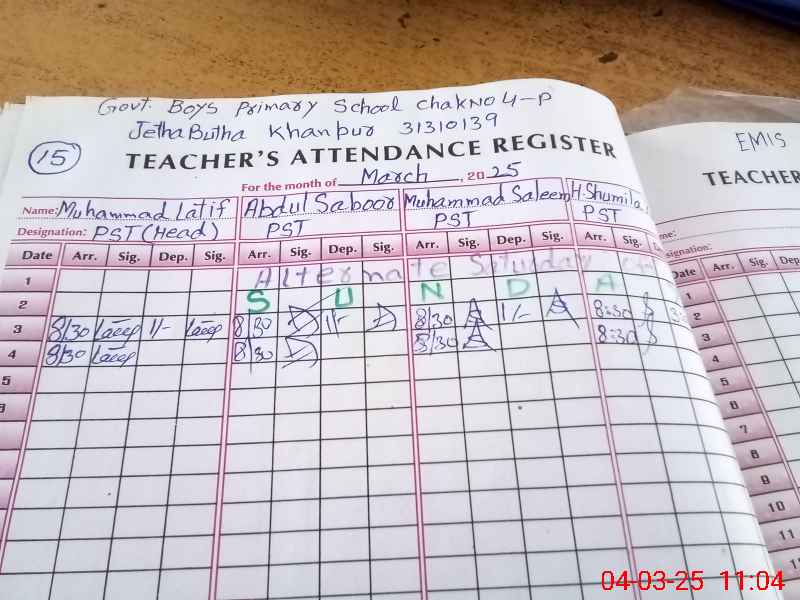 Govt. Boys Primary School Chak No 4-P
Jetha Butha Khanpur 31310139
15
TEACHER'S ATTENDANCE REGISTER
For the month of March, 2025
Name: Muhammad Latif Abdul Saboor Muhammad Saleem H. Shumila
Designation: PST (Head) PST PST PST
Date Arr. Sig. Dep. Sig. Arr. Sig. Dep. Sig. Arr. Sig. Dep. Sig. Arr. Sig.
1 Alternate Saturday
2 S U N D A
3 8/30 1/- 8/30 1/- 8/30 1/- 8:30
4 8/30 8/30 8/30 8:30
5
6
EMIS
TEACHER
me:
signation:
Date Arr. Sig. Dep. Sig.
1
2
3
4
5
6
7
8
9
10
11
04-03-25 11:04